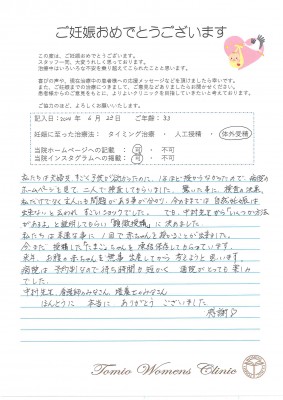 ご妊娠おめでとうございます
この度は、ご妊娠おめでとうございます。
スタッフ一同、大変うれしく思っております。
治療中はいろいろな不安を乗り越えてこられたことと思います。
喜びの声や、現在治療中の患者様への応援メッセージなどを頂けましたら幸いです。
また、ご妊娠までの治療につきまして、ご意見などありましたらお聞かせください。
患者様からのご意見をもとに、よりよいクリニックを目指していきたいと考えております。
ご協力のほど、よろしくお願いいたします。
記入日: 年 6 月 22 日 ご年齢: 33
妊娠に至った治療法: タイミング治療 ・ 人工授精 ・ 体外受精
当院ホームページへの記載 : 可 ・ 不可
当院インスタグラムへの掲載 : 可 ・ 不可
私たちは夫婦、すぐ子供が欲しかったのに、1年ほど授からなかったので、病院の
ホームページを見て、二人で検査してもらいました。驚いた事に、検査の結果、
私だけでなく主人にも問題がある事が分かり、今のままでは自然妊娠は
出来ないと云われ、すごいショックでした。でも、中村先生から「いくつか方法
があるよ」と説明してもらい「顕微授精」に決めました。
私たちは幸運な事に、1回で赤ちゃんを授かることが出来ました。
今、また、授精したたまごちゃんを凍結保存してもらっています。
来年、お腹の赤ちゃんを無事出産してから考えようと思います。
病院は予約制なので待ち時間も短かく、通院がとっても楽しみ
でした。
中村先生、看護師のみなさん、培養士のみなさん
ほんとうに 本当に ありがとう ございました
感謝♡
Tomio Womens Clinic